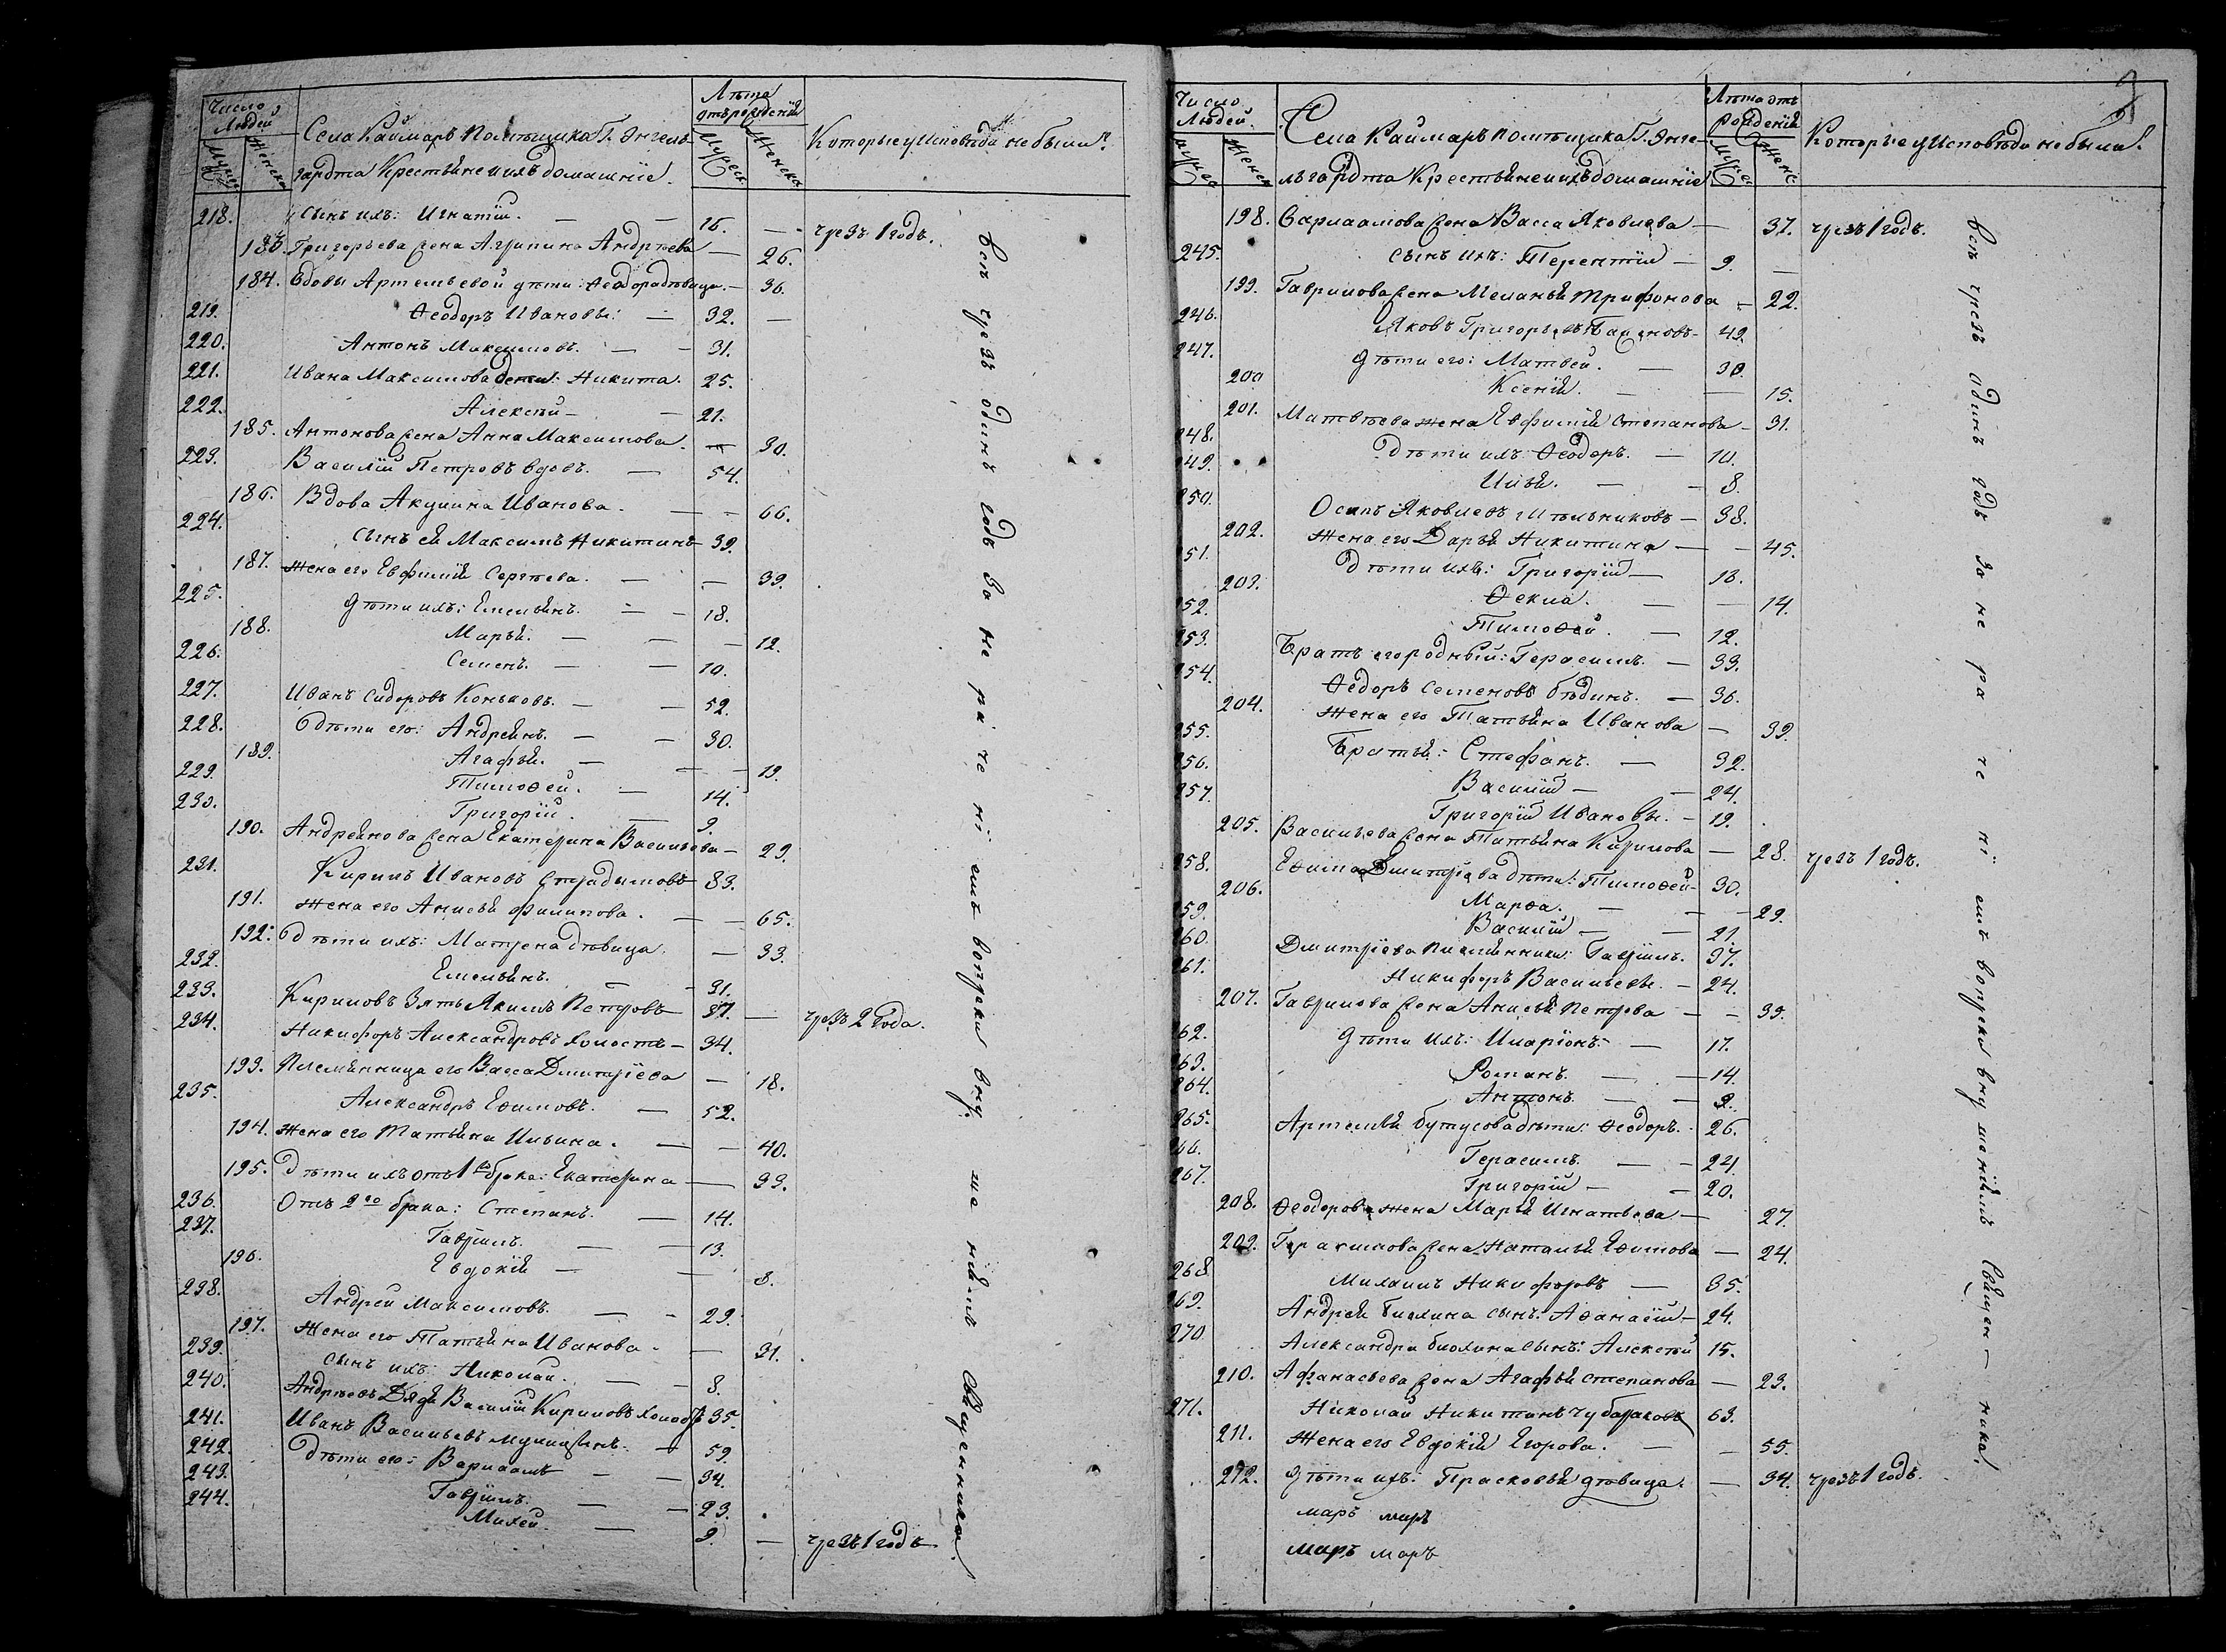 Число Людей
Мужес. Женска
Села Каймаръ Помѣщика Г. Энгель-
гардта Крестьяне и ихъ домашніе.
Лѣта отъ рожденія
Мужеск. Женска
Которые у Исповѣди не были.
218. сынъ ихъ: Игнатій. — 16. — чрезъ 1 годъ.
183. Григорьева жена Агрипина Андрѣева — 26.
184. Вдовы Артемьевой дѣти: Ѳеодора дѣвица. — 36.
219. Ѳеодоръ Ивановы: — 32. —
220. Антонъ Максимовъ. — 31.
221. Ивана Максимова дети: Никита. 25.
222. Алексѣй — 21.
185. Антонова жена Анна Максимова. — 30.
223. Василій Петровъ вдовъ. — 54.
186. Вдова Акулина Иванова. — 66.
224. сынъ ея Максимъ Никитинъ 39.
187. Жена его Евфимія Сергѣева. — 39.
225. Дѣти ихъ: Емельянъ. — 18.
188. Марья. — 12.
226. Семенъ. — 10.
227. Иванъ Сидоровъ Коньковъ. — 52.
228. Дѣти его: Андреянъ. — 30.
189. Агафья. — 19.
229. Тимоѳей. — 14.
230. Григорій. — 9.
190. Андреянова жена Екатерина Васильева — 29.
231. Кирилъ Ивановъ 83.
191. Жена его Анисья Филипова. — 65.
192. Дѣти ихъ: Матрена дѣвица. — 33.
232. Емельянъ. — 31.
233. Кириловъ Зять Якимъ Петровъ 37. — чрезъ 2 года.
234. Никифоръ Александровъ холостъ — 34.
193. Племянница его Васса Дмитріева — 18.
235. Александръ Еѳимовъ. — 52.
194. Жена его Татьяна Ильина. — 40.
195. Дѣти ихъ отъ 1го брака: Екатерина — 33.
236. Отъ 2го брака: Степанъ. — 14.
237. Гаврилъ. — 13.
196. Евдокія — 8.
238. Андрей Максимовъ. — 29.
197. Жена его Татьяна Иванова. — 31.
239. сынъ ихъ: Николай. — 8.
240. Андрѣевъ Дядя Василій Кириловъ холостъ 35.
241. Иванъ Васильевъ — 59.
242. Дѣти его: Варлаамъ — 34.
243. Гаврилъ. — 23.
244. Михей. — 9. — чрезъ 1 годъ
всѣ чрезъ одинъ годъ За не ра че ні емъ вопреки вну ше ніямъ Священника.
Число Людей.
Мужес Женск
Села Каймаръ помѣщика Г. Энге-
льгардта Крестьяне и ихъ домашніе
Лѣта отъ рожденія
Мужес Женс.
Которые у Исповѣди не были.
198. Варлаамова жена Васса Яковлева — 37. чрезъ 1 годъ.
245. сынъ ихъ: Терентій — 9. —
199. Гаврилова жена Меланья Трифонова — 22.
246. Яковъ Григорьевъ 49.
247. Дѣти его: Матвей. — 30.
200 Ксенія. — 15.
201. Матвѣева жена Евфимія Степанова — 31.
248. Дѣти ихъ: Ѳеодоръ. — 10.
249. Илья. — 8.
250. Осипъ Яковлевъ — 38.
202. Жена его Дарья Никитина — 45.
251. Дѣти ихъ: Григорій — 18.
203. Ѳекла. — 14.
252. Тимоѳей. — 12.
253. Братъ его родный: Герасимъ. — 33.
254. Ѳедоръ Семеновъ — 36.
204. Жена его Татьяна Иванова — 39.
255. Братья: Стефанъ. — 32.
256. Василій — 24.
257. Григорій Ивановы. — 19.
205. Васильева жена Татьяна Кирилова — 28. чрезъ 1 годъ.
258. Еѳима Дмитріева дѣти: Тимоѳей — 30.
206. Марѳа. — 29.
259. Василій — 21.
260. Дмитріева племянники: Гаврилъ. 37.
261. Никифоръ Васильевы. — 24.
207. Гаврилова жена Анисья Петрова — 39.
262. Дѣти ихъ: Иларіонъ. — 17.
263. Романъ. — 14.
264. Антонъ. — 9.
265. Артемья Бутусова дѣти: Ѳеодоръ. 26.
266. Герасимъ. — 24.
267. Григорій — 20.
208. Ѳеодорова жена Марья Игнатьева — 27.
209. Герасимова жена Наталья Еѳимова — 24.
268 Михаилъ Никифоровъ — 35.
269. Андрея сынъ: Аѳанасій — 24.
270 Александра сынъ: Алексѣй 15.
210. Афанасьева жена Агафья Степанова — 23.
271. Николай Никитинъ 63.
211. Жена его Евдокія Егорова. — 55.
212. Дѣти ихъ: Прасковья дѣвица. — 34. чрезъ 1 годъ.
маръ маръ
маръ маръ
всѣ чрезъ одинъ годъ за не ра че ні емъ вопреки вну шеніямъ Священ — ника.